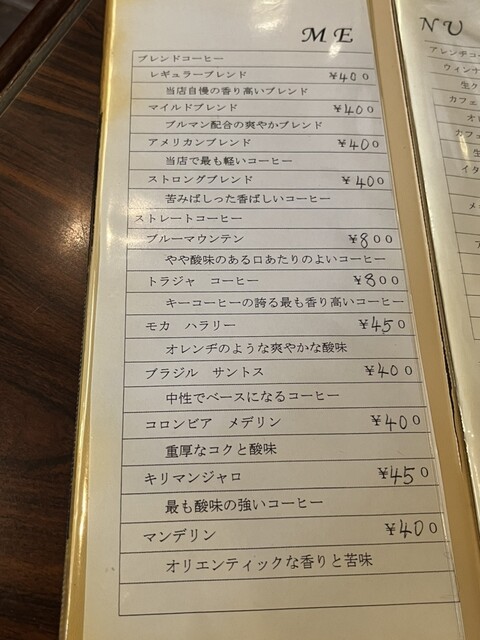 ME
ブレンドコーヒー
レギュラーブレンド ¥400
当店自慢の香り高いブレンド
マイルドブレンド ¥400
ブルマン配合の爽やかブレンド
アメリカンブレンド ¥400
当店で最も軽いコーヒー
ストロングブレンド ¥400
苦みばしった香ばしいコーヒー
ストレートコーヒー
ブルーマウンテン ¥800
やや酸味のある口あたりのよいコーヒー
トラジャ コーヒー ¥800
キーコーヒーの誇る最も香り高いコーヒー
モカ ハラリー ¥450
オレンヂのような爽やかな酸味
ブラジル サントス ¥400
中性でベースになるコーヒー
コロンビア メデリン ¥400
重厚なコクと酸味
キリマンジャロ ¥450
最も酸味の強いコーヒー
マンデリン ¥400
オリエンティックな香りと苦味
NU
アレンヂコー
ウィンナ
生ク
カフェ
オ
カフェ
生
イタ